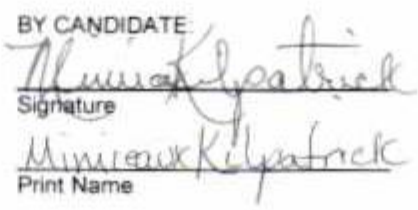 BY CANDIDATE:
Kilpatrick
Signature
Kilpatrick
Print Name